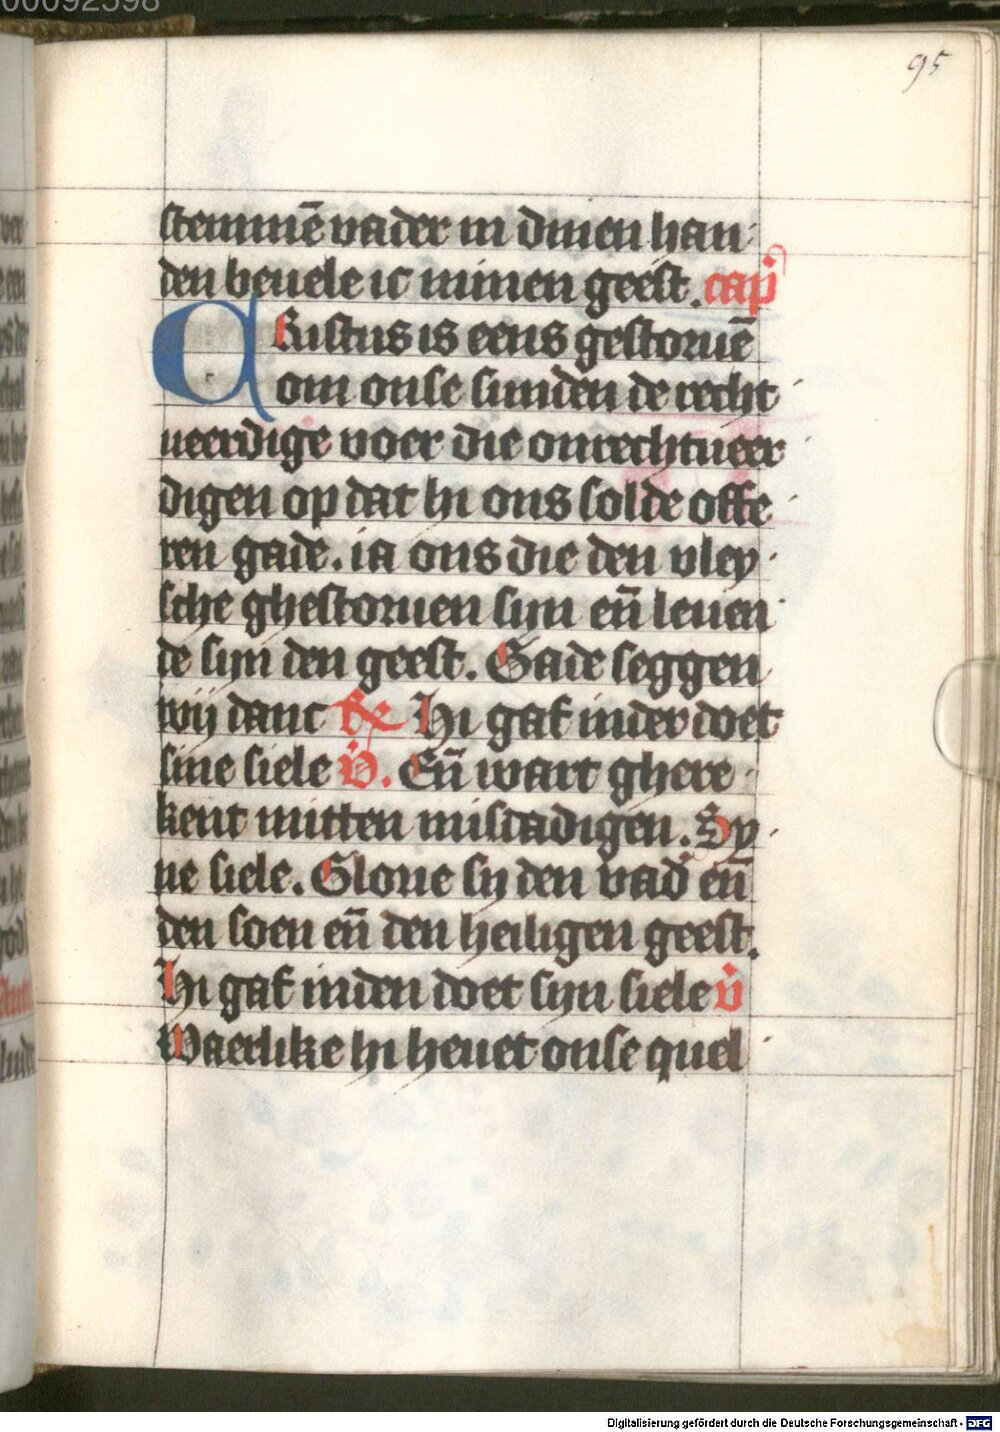 00092598
95
stemmē vader in dinen han
den beuele ic minen geest. cap̄
Cristus is eens gestoruē
om onse sunden de recht
ueerdige voer die onrechtueer
digen op dat hi ons solde offe
ren gade. ia ons die den vley
sche ghestoruen sijn eñ leuen
de sijn den geest. Gade seggen
wij danc ℟ Hi gaf inder doet
sine siele V. Eñ wart ghere
kent mitten misdadigen. Sy
ne siele. Glorie sij den vad̄ eñ
den soen eñ den heiligen geest.
Hi gaf inden doet sijn siele v
Waerlike hi heuet onse quel
Digitalisierung gefördert durch die Deutsche Forschungsgemeinschaft - DFG